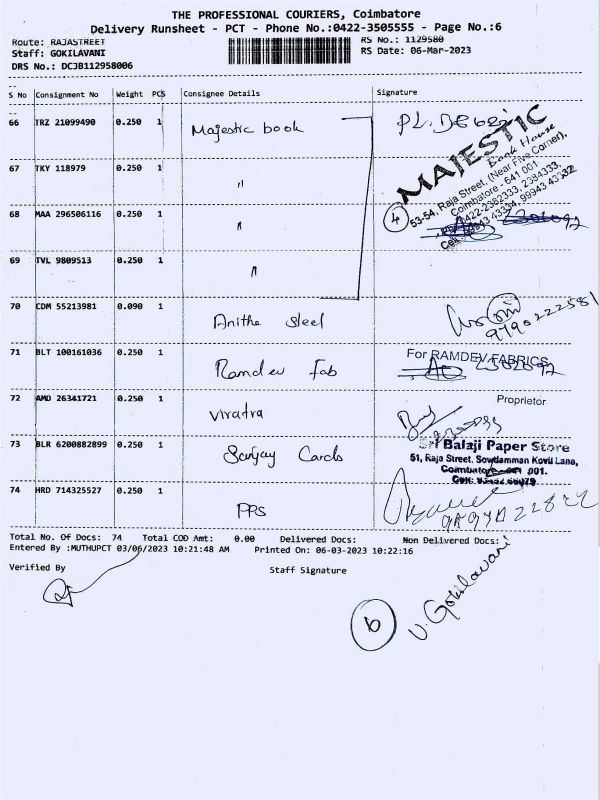 THE PROFESSIONAL COURIERS, Coimbatore
Delivery Runsheet - PCT - Phone No.:0422-3505555 - Page No.:6
Route: RAJASTREET
RS No.: 1129580
Staff: GOKILAVANI
RS Date: 06-Mar-2023
DRS No.: DCJB112958006
S No Consignment No Weight PCS Consignee Details Signature
66 TRZ 21099490 0.250 1 Majestic book
MAJESTIC
Book House
53-54, Raja Street, (Near Five Corner),
Coimbatore - 641 001
67 TKY 118979 0.250 1 "
68 MAA 296506116 0.250 1 "
4
69 TVL 9809513 0.250 1 "
70 CDM 55213981 0.090 1 Anitha steel
9790222581
71 BLT 100161036 0.250 1 Ramdev Fab
For RAMDEV FABRICS
72 AMD 26341721 0.250 1 Viratra
Proprietor
73 BLR 6200882899 0.250 1 Sanjay Cards
Sri Balaji Paper Store
51, Raja Street, Sowdamman Kovil Lane,
Coimbatore - 641 001.
74 HRD 714325527 0.250 1 PPS
Total No. Of Docs: 74 Total COD Amt: 0.00 Delivered Docs: Non Delivered Docs:
Entered By :MUTHUPCT 03/06/2023 10:21:48 AM Printed On: 06-03-2023 10:22:16
Verified By
Staff Signature
6
V. Gokilavani